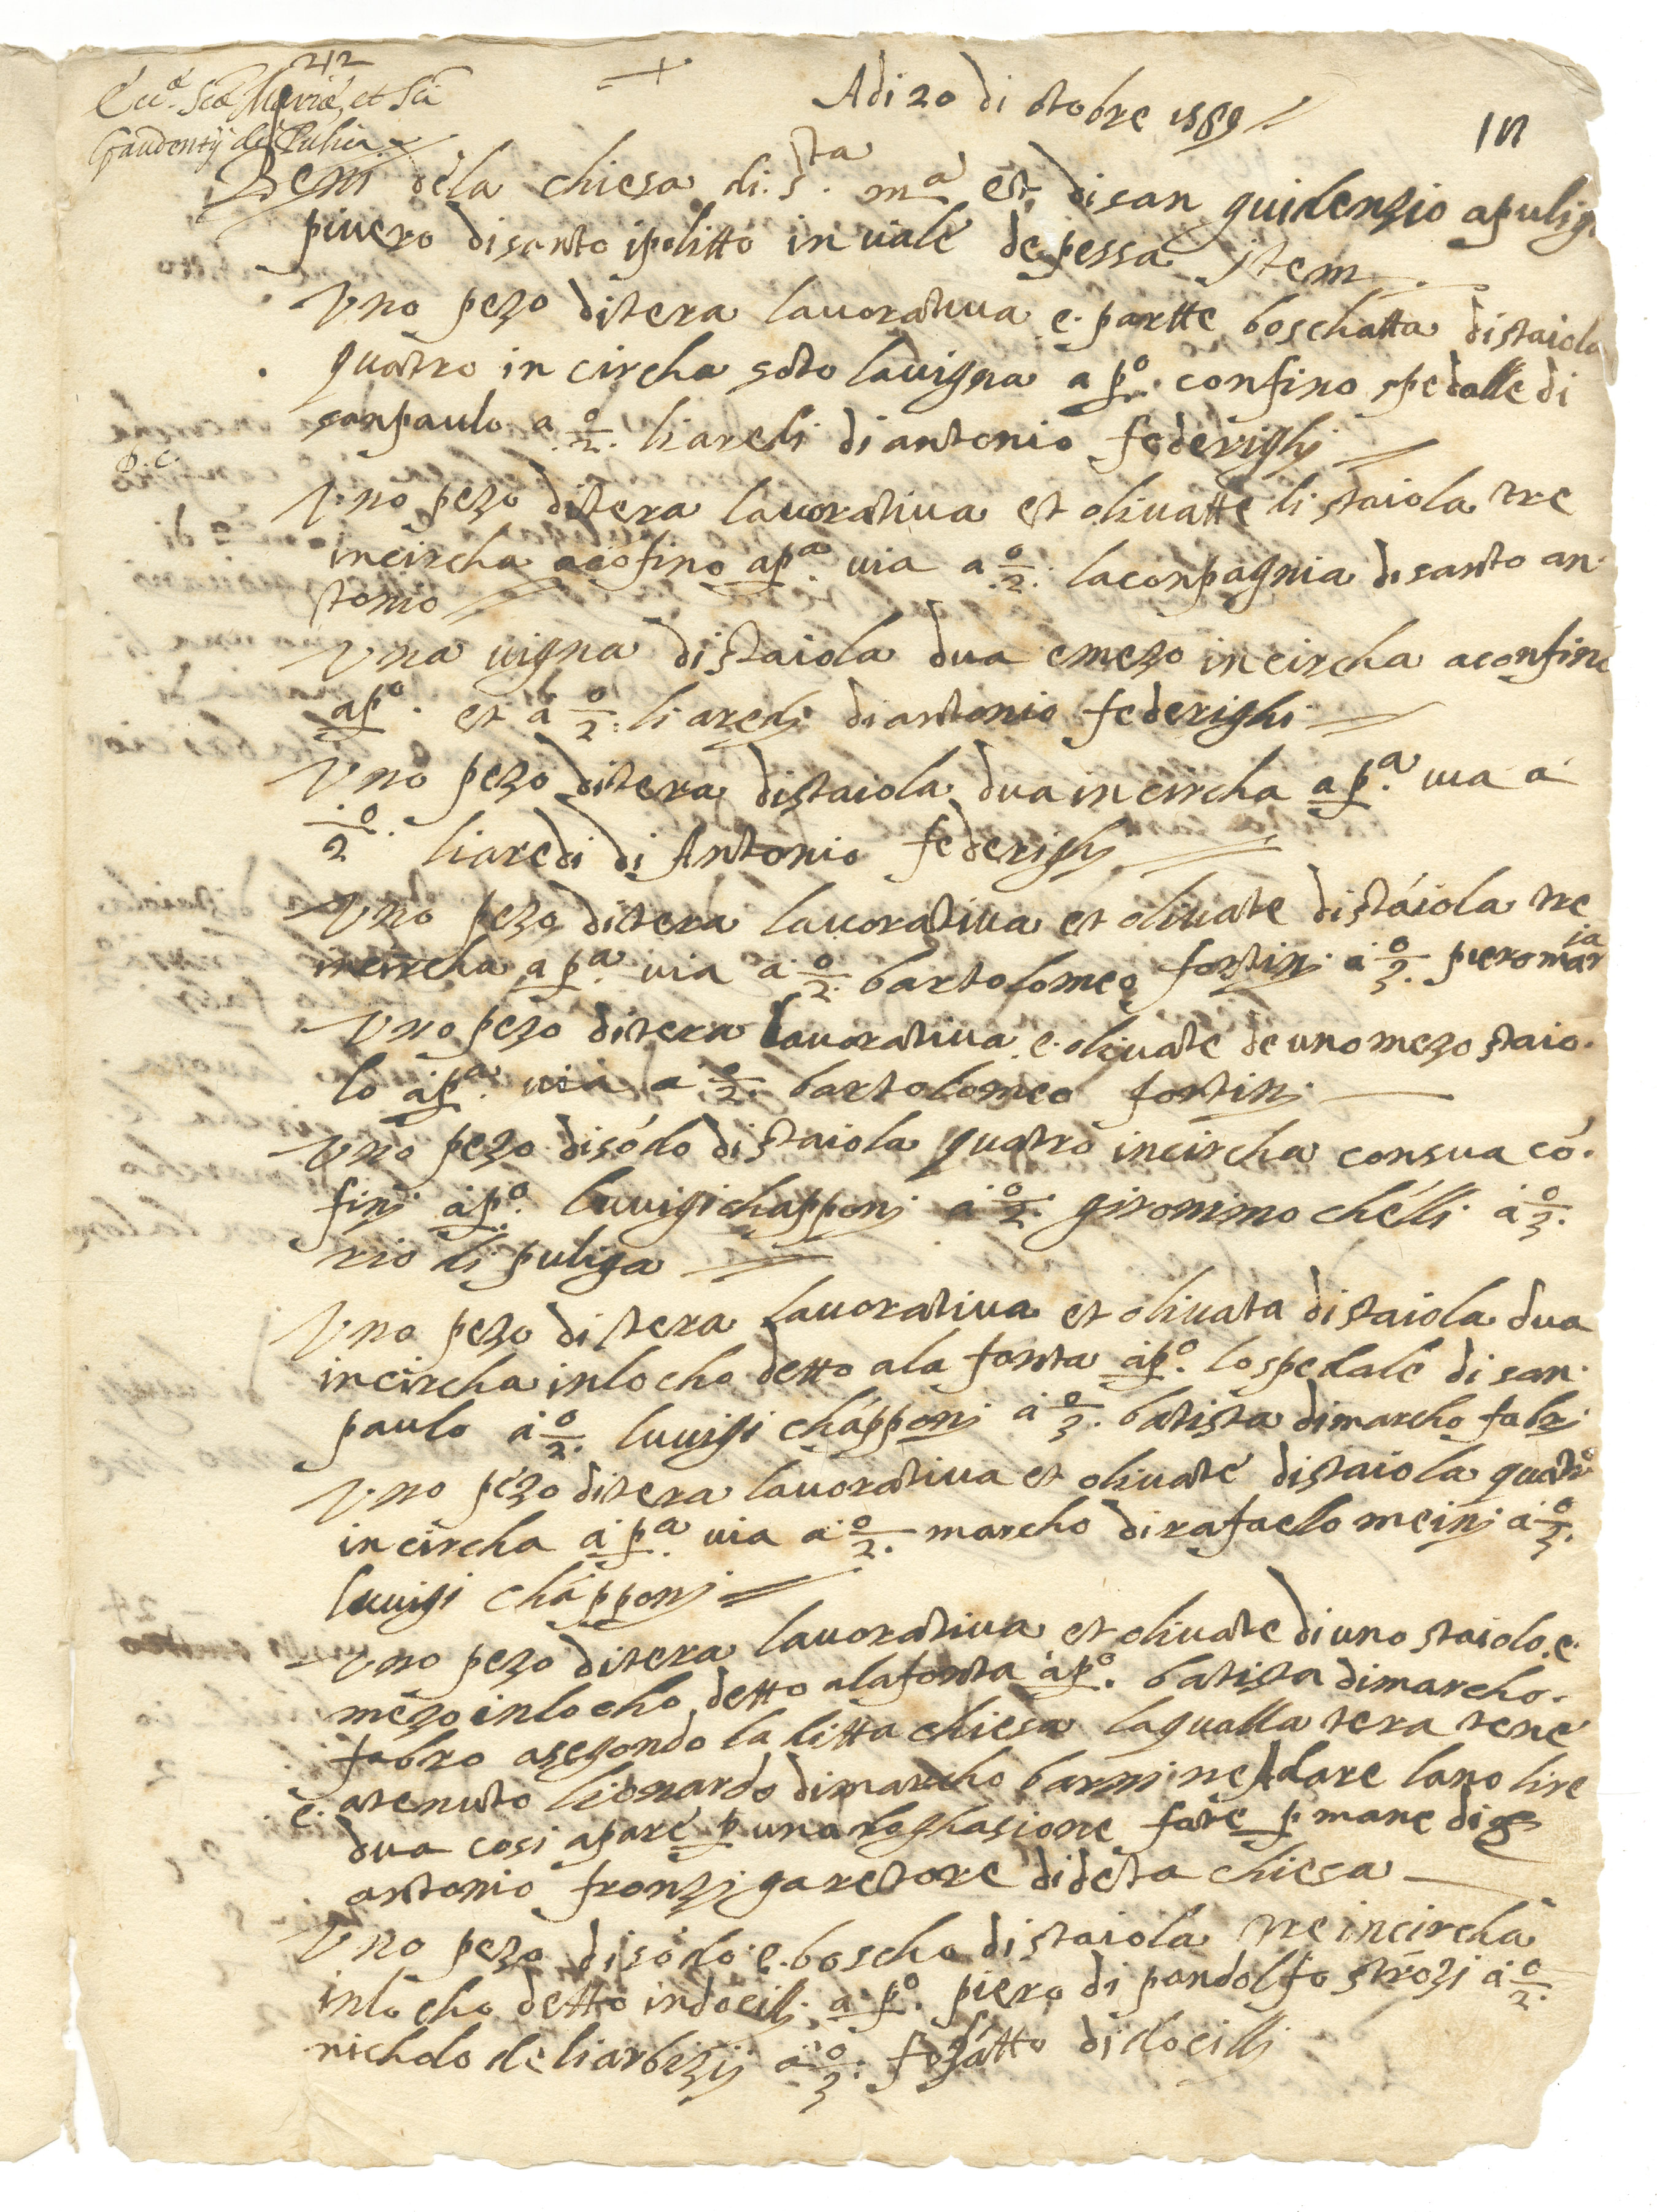 212
Ecc.ᵃ Scae Mariae, et Sci
Gaudentij de Pulica
+
Adi 20 di otobre 1589
Beni dela chiesa di s.ta mᵃ et di san guidenzio apuliga
pivero di santo ipolitto in vale de pessa Item
Uno pezo di tera lavorativa e partte boschatta distaiola
quatro in circha soto lavigna a pº. confino spedalle di
sanpaulo a º/2. liaredi di antonio federighj
Uno pezo ditera lavorativa et olivatte di staiola tre
incircha acofino apª. via a º/2. laconpagnia di santo an-
tonio
Una vigna distaiola dua emezo incircha aconfino
apº. et a º/2. li aredi di antonio federighi
Uno pezo ditera distaiola dua in circha apª. via a
º/2 liaredi di Antonio federighj
Uno pezo ditera lavorativa et olivate distaiola tre
incircha apª. via a º/2. bartolomeo fortinj a º/3. piero mar
ia
Uno pezo ditera lavorativa e. olivate de uno mezo staio-
lo apª. via a º/2. bartolomeo fortinj
Uno pezo disodo distaiola quatro incircha consua co-
finj apº. luuigi chapponj a º/2. gironimo chelli a º/3.
rio di puliga
Uno pezo di tera lavorativa et olivata distaiola dua
incircha inlocho detto ala fonta apº. lo spedale di san-
paulo a º/2. luuigi chapponj a º/3. batista dimarcho fabrj
Uno pezo ditera lavorativa et olivate distaiola quatro
in circha a pª. via a º/2. marcho dirafaelo meinj a º/3.
luuigi chapponj
Uno pezo ditera lavorativa et olivate di uno staiolo e.
mezo inlocho detto alafonta apº. batista dimarcho-
fabro asegondo la litta chiesa laqualla tera tene
e. atenuto lionardo dimarcho barnj ne dare lano lire
dua cosi apare p una loghasione fate p mane di
antonio fronzi garetore di deta chiesa
Uno pezo di sodo e. boscho distaiola tre incircha
inlocho detto indocilli a pº. piero di pandolfo strozi a º/2.
nicholo deliarbizij a º/3. fosatto di docilli